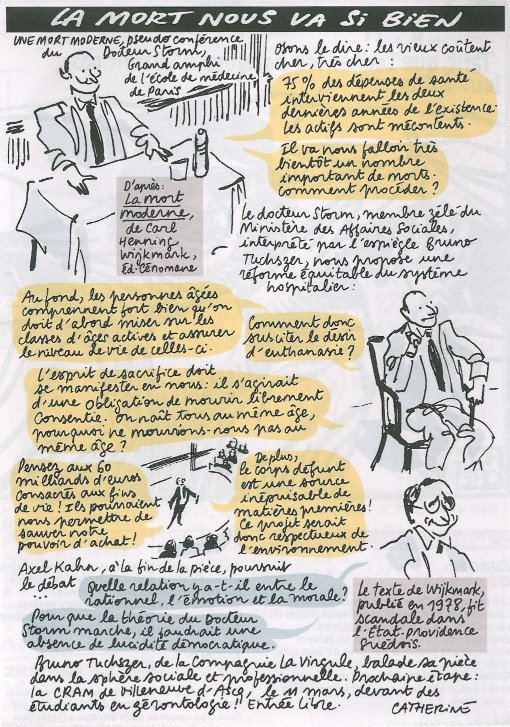 LA MORT NOUS VA SI BIEN
UNE MORT MODERNE, pseudo conférence
du Docteur Storm,
Grand amphi
de l'école de médecine
de Paris
Osons le dire : les vieux coûtent
cher, très cher :
75 % des dépenses de santé
interviennent les deux
dernières années de l'existence.
les actifs sont mécontents.
Il va nous falloir très
bientôt un nombre
important de morts.
Comment procéder ?
D'après :
La mort
moderne,
de Carl
Henning
Wijkmark,
Ed. Cénomane
Le docteur Storm, membre zélé du
Ministère des Affaires Sociales,
interprété par l'espiègle Bruno
Tuchszer, nous propose une
réforme équitable du système
hospitalier :
Au fond, les personnes âgées
comprennent fort bien qu'on
doit d'abord miser sur les
classes d'âges actives et assurer
le niveau de vie de celles-ci.
Comment donc
susciter le désir
d'euthanasie ?
L'esprit de sacrifice doit
se manifester en nous : il s'agirait
d'une Obligation de mourir librement
Consentie. On naît tous au même âge,
pourquoi ne mourrions-nous pas au
même âge ?
Pensez aux 60
milliards d'euros
consacrés aux fins
de vie ! Ils pourraient
nous permettre de
sauver notre
pouvoir d'achat !
De plus,
le corps défunt
est une source
inépuisable de
matières premières !
Ce projet serait
donc respectueux de
l'environnement.
Axel Kahn, à la fin de la pièce, poursuit
le débat...
Quelle relation y a-t-il entre le
rationnel, l'émotion et la morale ?
Pour que la théorie du Docteur
Storm marche, il faudrait une
absence de lucidité démocratique.
Le texte de Wijkmark,
publié en 1978, fit
scandale dans
l'Etat-providence
suédois.
Bruno Tuchszer, de la Compagnie La Virgule, balade sa pièce
dans la sphère sociale et professionnelle. Prochaine étape :
la CRAM de Villeneuve d'Ascq, le 11 mars, devant des
étudiants en gérontologie !! Entrée Libre.
CATHERINE